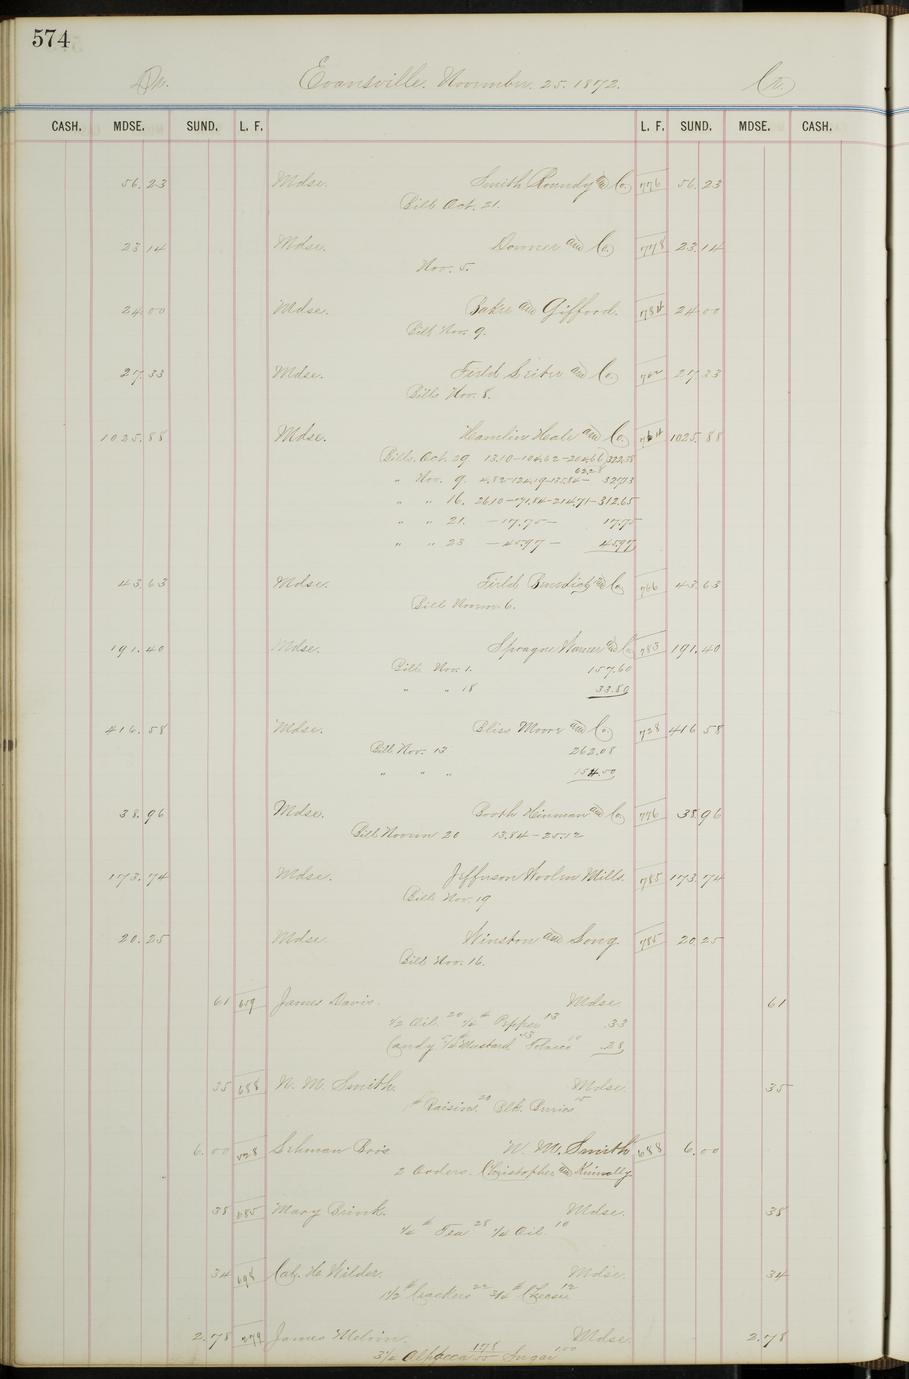 574
Dr. Evansville. November. 25. 1872. Cr.
CASH. MDSE. SUND. L. F. L. F. SUND. MDSE. CASH.
56.23 Mdse. Smith Roundy and Co. 776 56.23
Bill Oct. 21.
23.14 Mdse. and Co. 778 23.14
Nov. 5.
24.00 Mdse. Baker and Gifford. 784 24.00
Bill Nov. 9.
27.33 Mdse. Field Leiter and Co. 27.33
Bills Nov. 8.
1025.88 Mdse. Hamlin Hale and Co. 764 1025.88
Bills. Oct. 29 13.10-104.62-204.66 322.38
" Nov. 9. 4.82-124.19-135.84- 62.28 327.13
" " 16. 26.10-71.84-214.71- 312.65
" " 21. -17.75- 17.75
" " 23 -45.97- 45.97
43.63 Mdse. Field Benedict and Co. 766 43.63
Bill Novem 6.
191.40 Mdse. Sprague Warner and Co. 783 191.40
Bill Nov. 1. 157.60
" " 18 33.80
416.58 Mdse. Bliss Moore and Co. 728 416.58
Bill Nov. 13 262.08
" " " 154.50
38.96 Mdse. Booth Hinman and Co. 776 38.96
Bill Novem 20 13.84-25.12
173.74 Mdse. Jefferson Woolen Mills. 785 173.74
Bill Nov. 19
20.25 Mdse. Winston and Song. 785 20.25
Bill Nov. 16.
61 659 James Davis. Mdse. 61
1/2 Oil. 20 1/4 # Pepper 13 .33
Candy Mustard Tobacco 10 .28
35 688 N. M. Smith. Mdse. 35
# Raisins 20 Blk. Berries 15
6.00 528 Schman Bros. N. M. Smith 688 6.00
2 Orders. Christopher and
38 685 Mary Brink. Mdse. 38
1/4 # Tea 28 1/4 Oil. 10
34 698 Cal. H. Wilder. Mdse. 34
1 1/2 # Crackers 22 3/4 # Cheese 12
2.78 279 James Melvin. Mdse. 2.78
3 1/2 Alpacca 178 Sugar 1.00